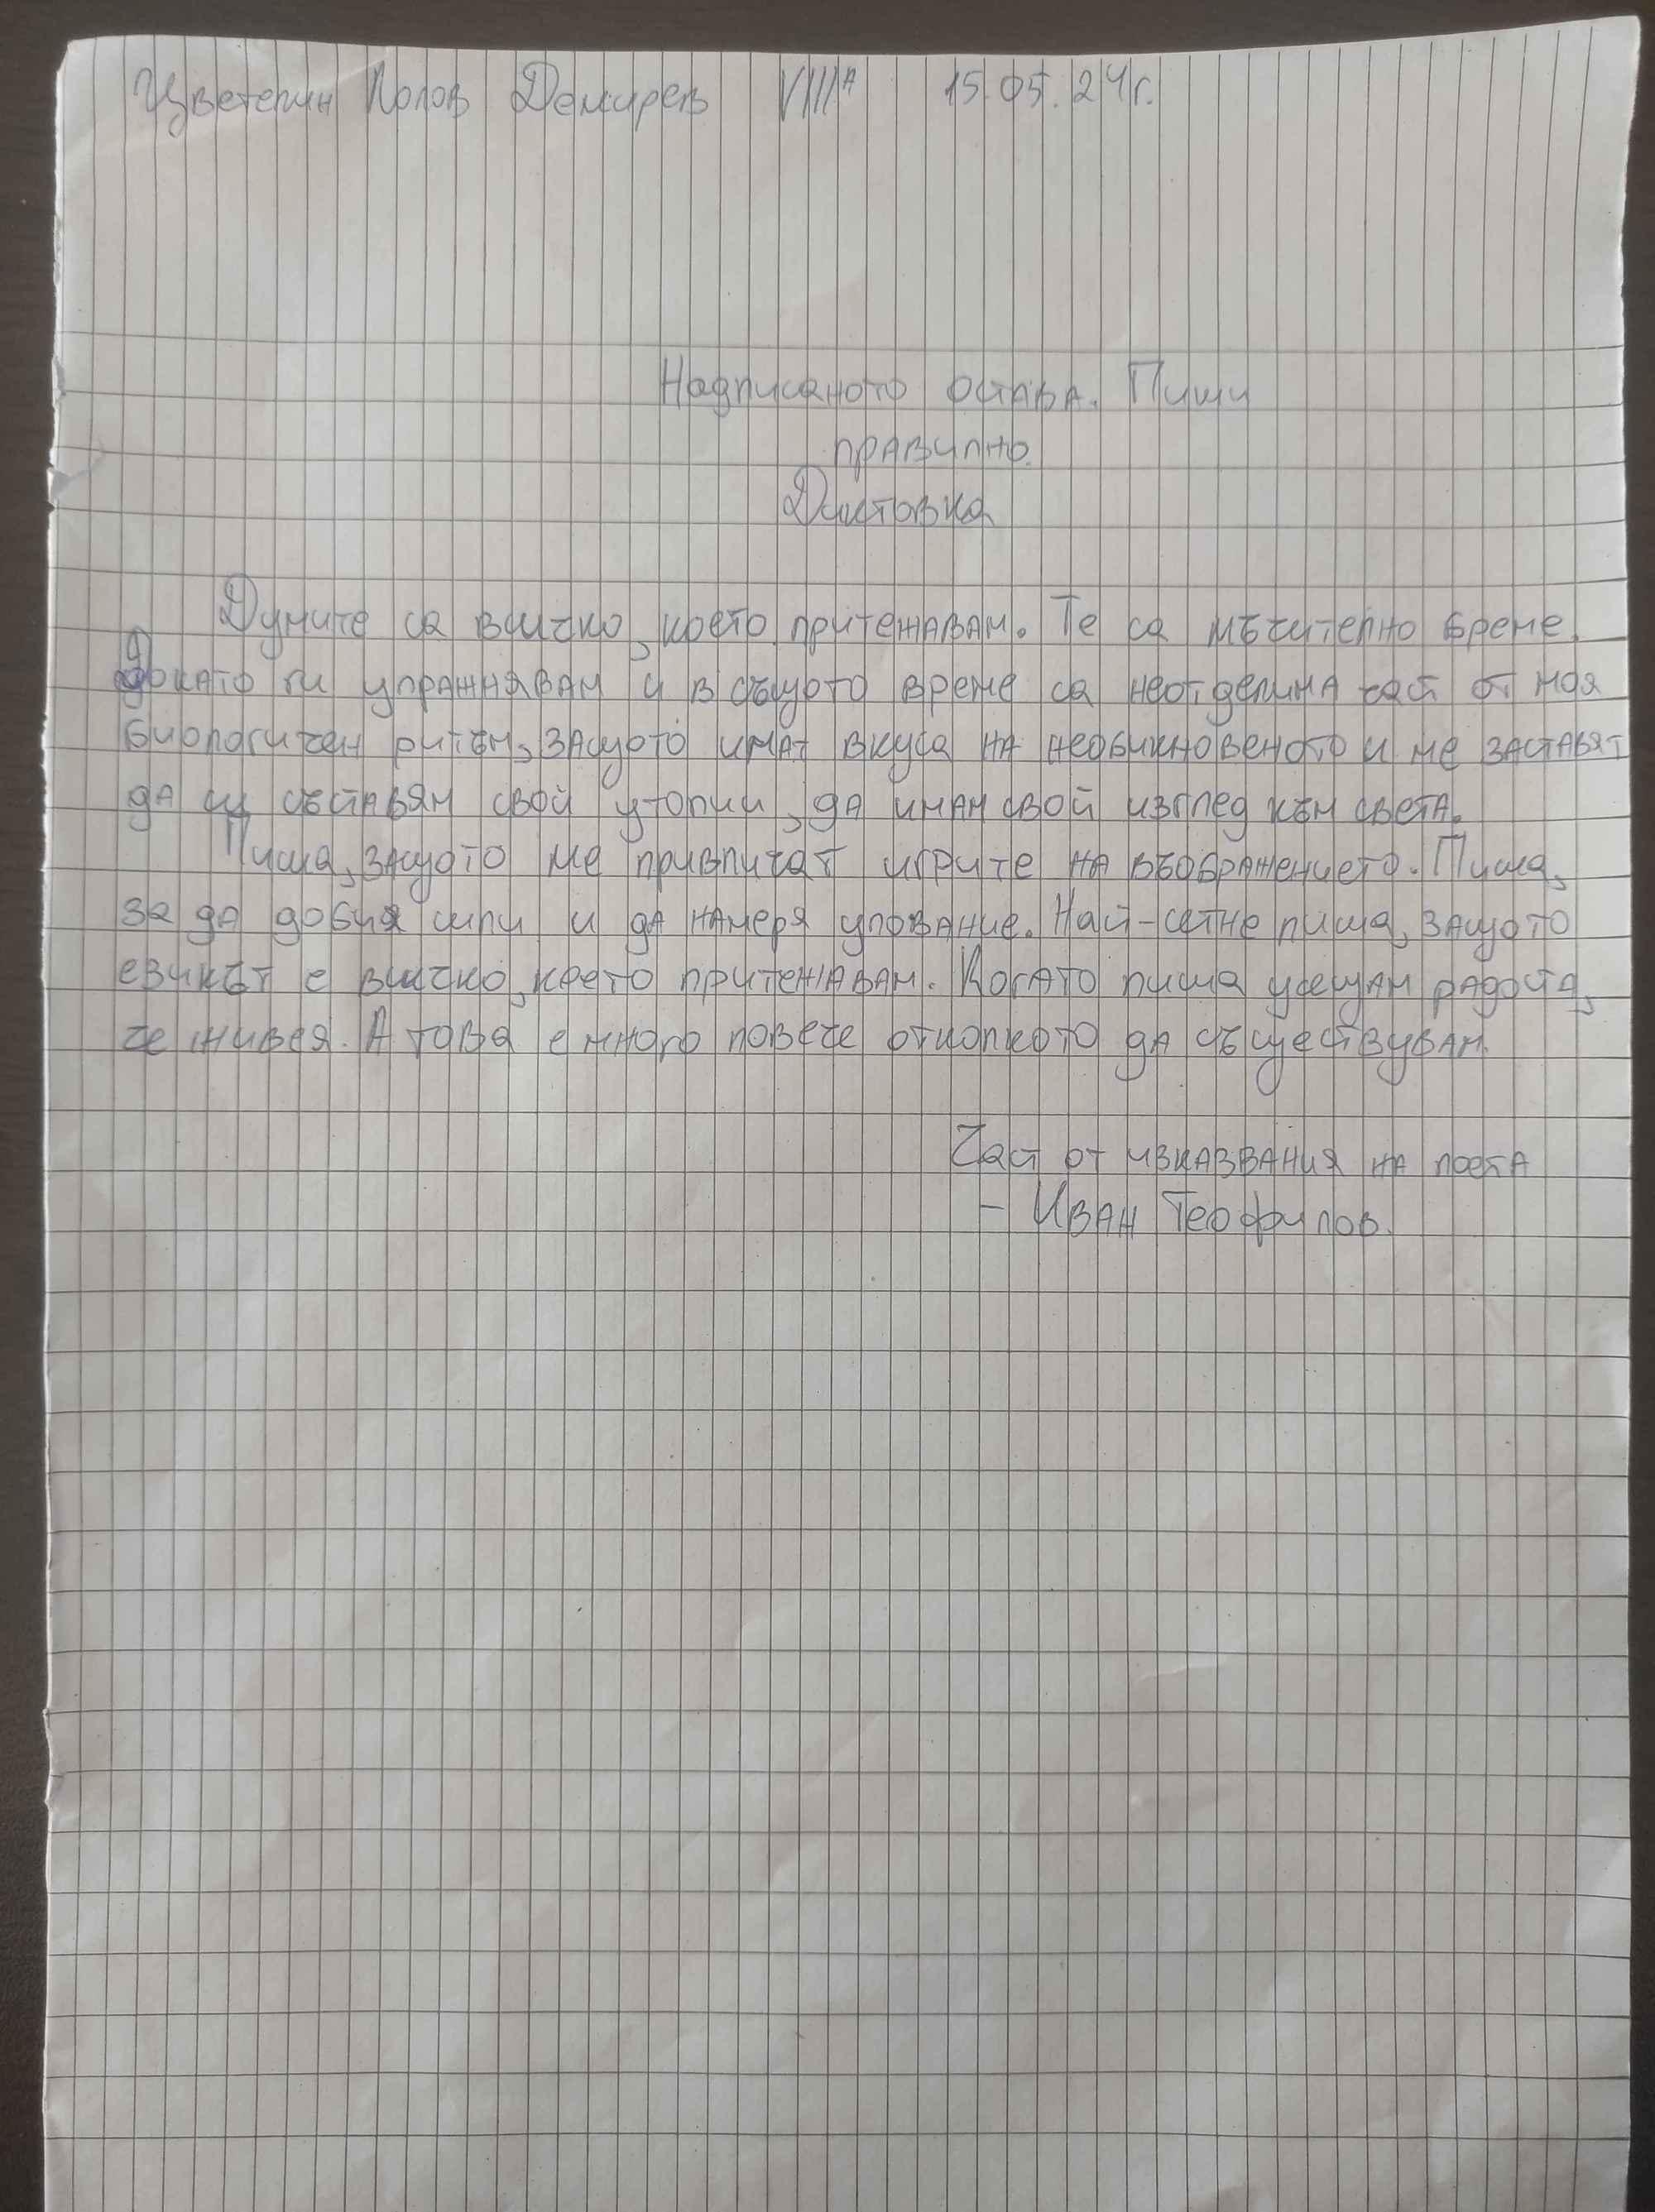 Цветелин Попов Демирев VIIIA 15.05.24г.
Надписаното остава. Пиши
правилно.
Диктовка
Думите са всичко, което притежавам. Те са мъчително бреме,
докато ги упражнявам и в същото време са неотделима част от моя
биологичен ритъм, защото имат вкуса на необикновеното и ме заставят
да си съставям свой утопии, да имам свой изглед към света.
Пиша, защото ме привличат игрите на въображението. Пиша,
за да добия сили и да намеря упование. Най-сетне пиша, защото
езикът е всичко, което притежавам. Когато пиша усещам радоста,
че живея. А това е много повече отколкото да съществувам.
Част от изказвания на поета
- Иван Теофилов.